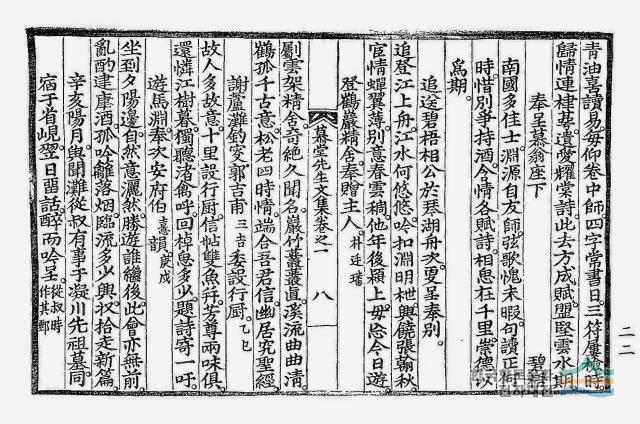 青油喜讀易毋仰卷中師四字常書日三符屢換時
歸情連棣蕚遺愛耀棠詩此去方成賦盟堅雲水期
奉呈慕翁座下 碧梧
南國多佳士淵源自友師弦歌愧未暇句讀正銜
時惜別爭持酒含情各賦詩相思在千里崇德以
爲期
追送碧梧相公於琴湖舟次更呈奉別
追登江上舟江水何悠悠吟扣淵明枻興饒張翰秋
宦情蟬翼薄別意春雲稠他年後潁上毋忘今日遊
登鶴巖精舍奉贈主人 朴廷璠
慕堂先生文集卷之一 八
劚雲架精舍奇絶久聞名巖竹叢叢直溪流曲曲淸
鶴孤千古意松老四時情端合吾君信幽居究聖經
謝蘆灘釣叟郭吉甫 三吉 委設行厨 乙巳
故人多故意十里設行厨信帖雙魚幷芳尊兩味俱
還憐江樹暮獨聽渚禽呼回棹思多少題詩寄一吁
遊馬淵奉次安府伯 憙 韻 庚戌
坐到夕陽邊自然意灑然勝遊誰繼後此會亦無前
亂酌建康酒孤吟離落烟臨流多少興收拾走新篇
辛亥陽月與關灘從叔有事于凝川先祖墓同
宿于省峴翌日留話醉而吟呈 從叔時作其郵
二二